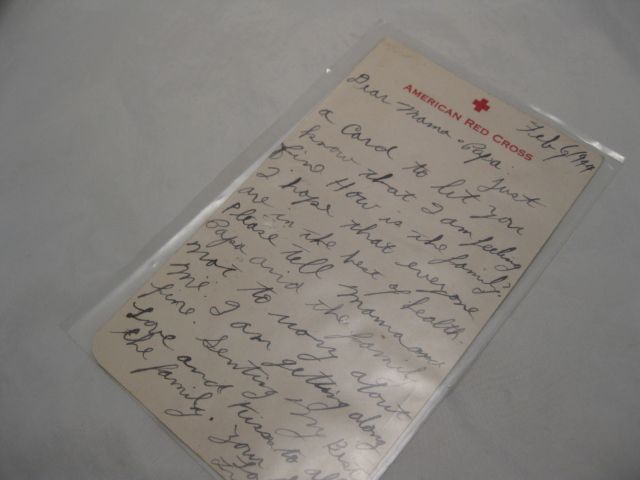 AMERICAN RED CROSS
Feb 6, 1944
Dear Mama & Papa: Just
a Card to lit you
know that I am feeling
fine How is the family?
I hope that everyone
are in the best of health.
Please tell Mama and
Papa and the family
not to worry about
me. I am getting along
fine. Senting my Best
Love and Kisses to all
the family. Your